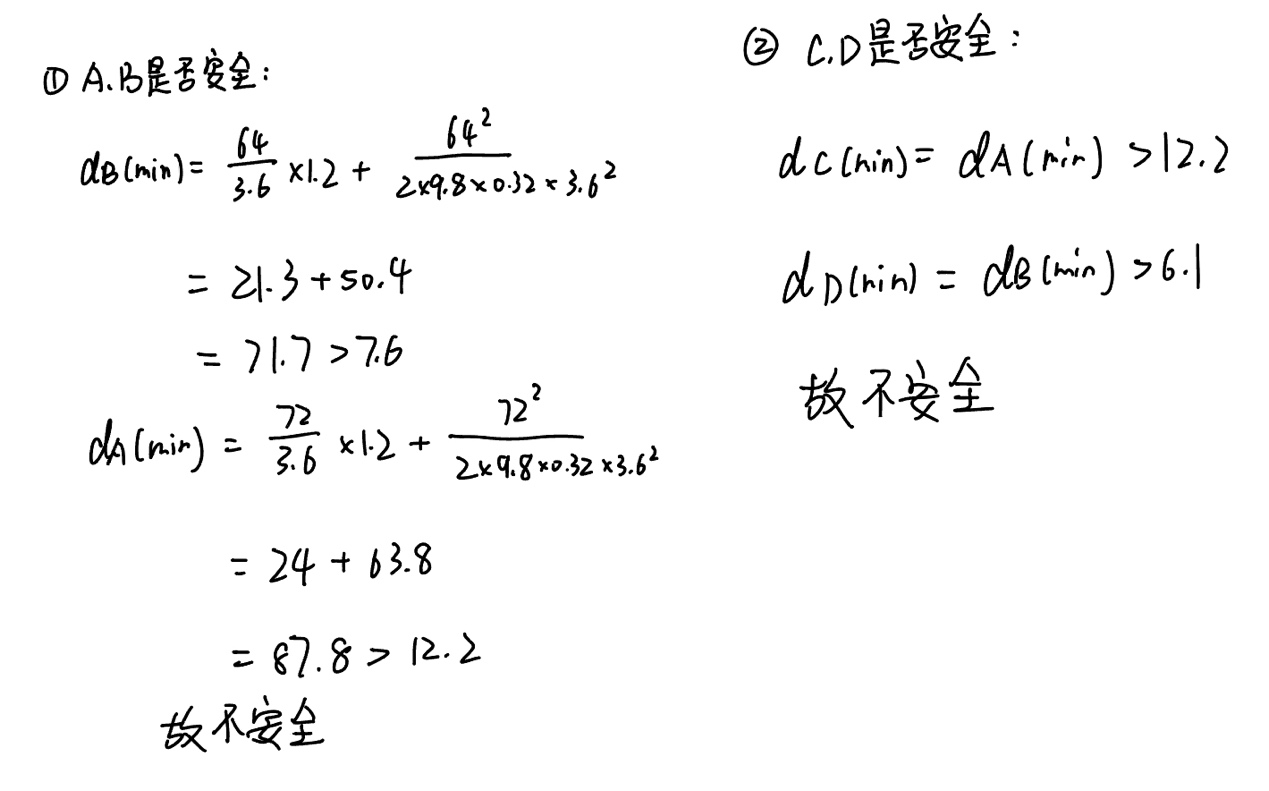 ① A.B是否安全:
dB(min)= 64/3.6 ×1.2 + 64²/(2×9.8×0.32×3.6²)
= 21.3+50.4
= 71.7>7.6
dA(min) = 72/3.6 ×1.2 + 72²/(2×9.8×0.32×3.6²)
= 24 + 63.8
= 87.8 > 12.2
故不安全
② C.D是否安全:
dC(min)= dA(min) >12.2
dD(min) = dB(min) >6.1
故不安全